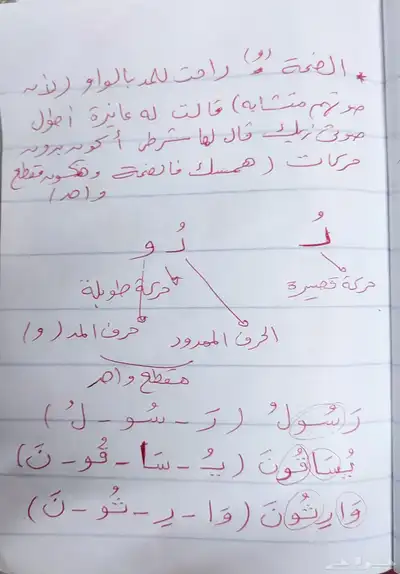 * الضمة (و) ُ راحت للمد بالواو (لأن
صوتهم متشابه) قالت له عايزة أطول
صوتي زيك قال لها شرط أكون بدون
حركات (همسك فالضمة وهكون مقطع
واحد)
رُ رُ و
حركة قصيرة حركة طويلة
الحرف الممدود حرف المد (و)
مقطع واحد
رَسُولُ (رَ - سُو - لُ)
يُسَاقُونَ (يُ - سَا - قُو - نَ)
وَارِثُونَ (وَا - رِ - ثُو - نَ)